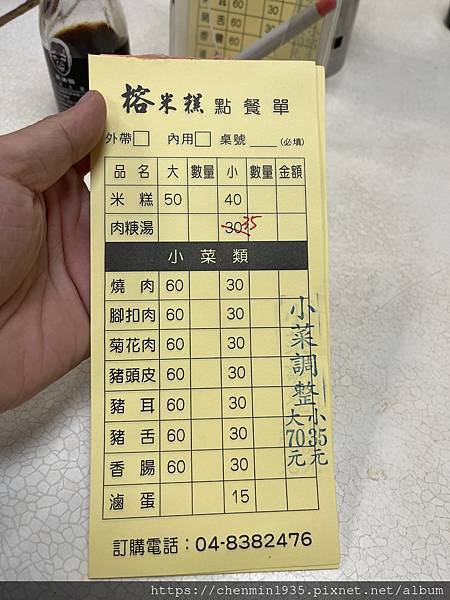 榕米糕點餐單
外帶□ 內用□ 桌號____(必填)
品名 大 數量 小 數量 金額
米糕 50 40
肉粳湯 30 35
小菜類
燒肉 60 30
腳扣肉 60 30
菊花肉 60 30
豬頭皮 60 30
豬耳 60 30
豬舌 60 30
香腸 60 30
滷蛋 15
小菜調整
小35元
大70元
訂購電話：04-8382476
https://chenmin1935.pixnet.net/album